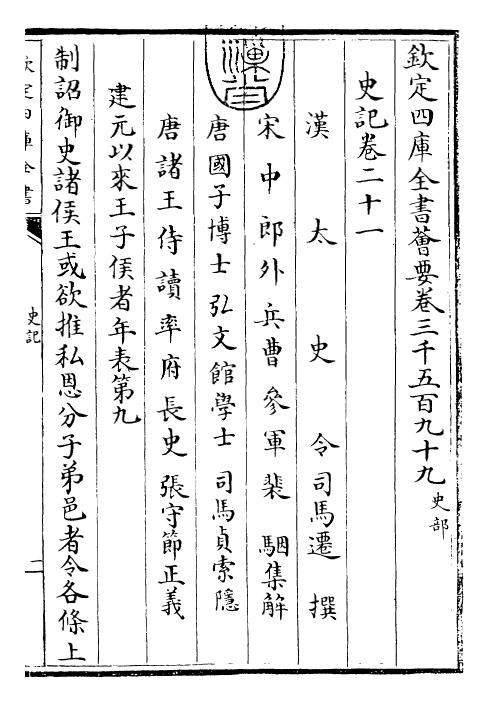 欽定四庫全書薈要卷三千五百九十九 史部
史記卷二十一
漢太史令司馬遷撰
宋中郎外兵曹參軍裴駰集解
唐國子博士弘文館學士司馬貞索隱
唐諸王侍讀率府長史張守節正義
建元以來王子侯者年表第九
制詔御史諸侯王或欲推私恩分子弟邑者令各條上
欽定四庫全書
史記